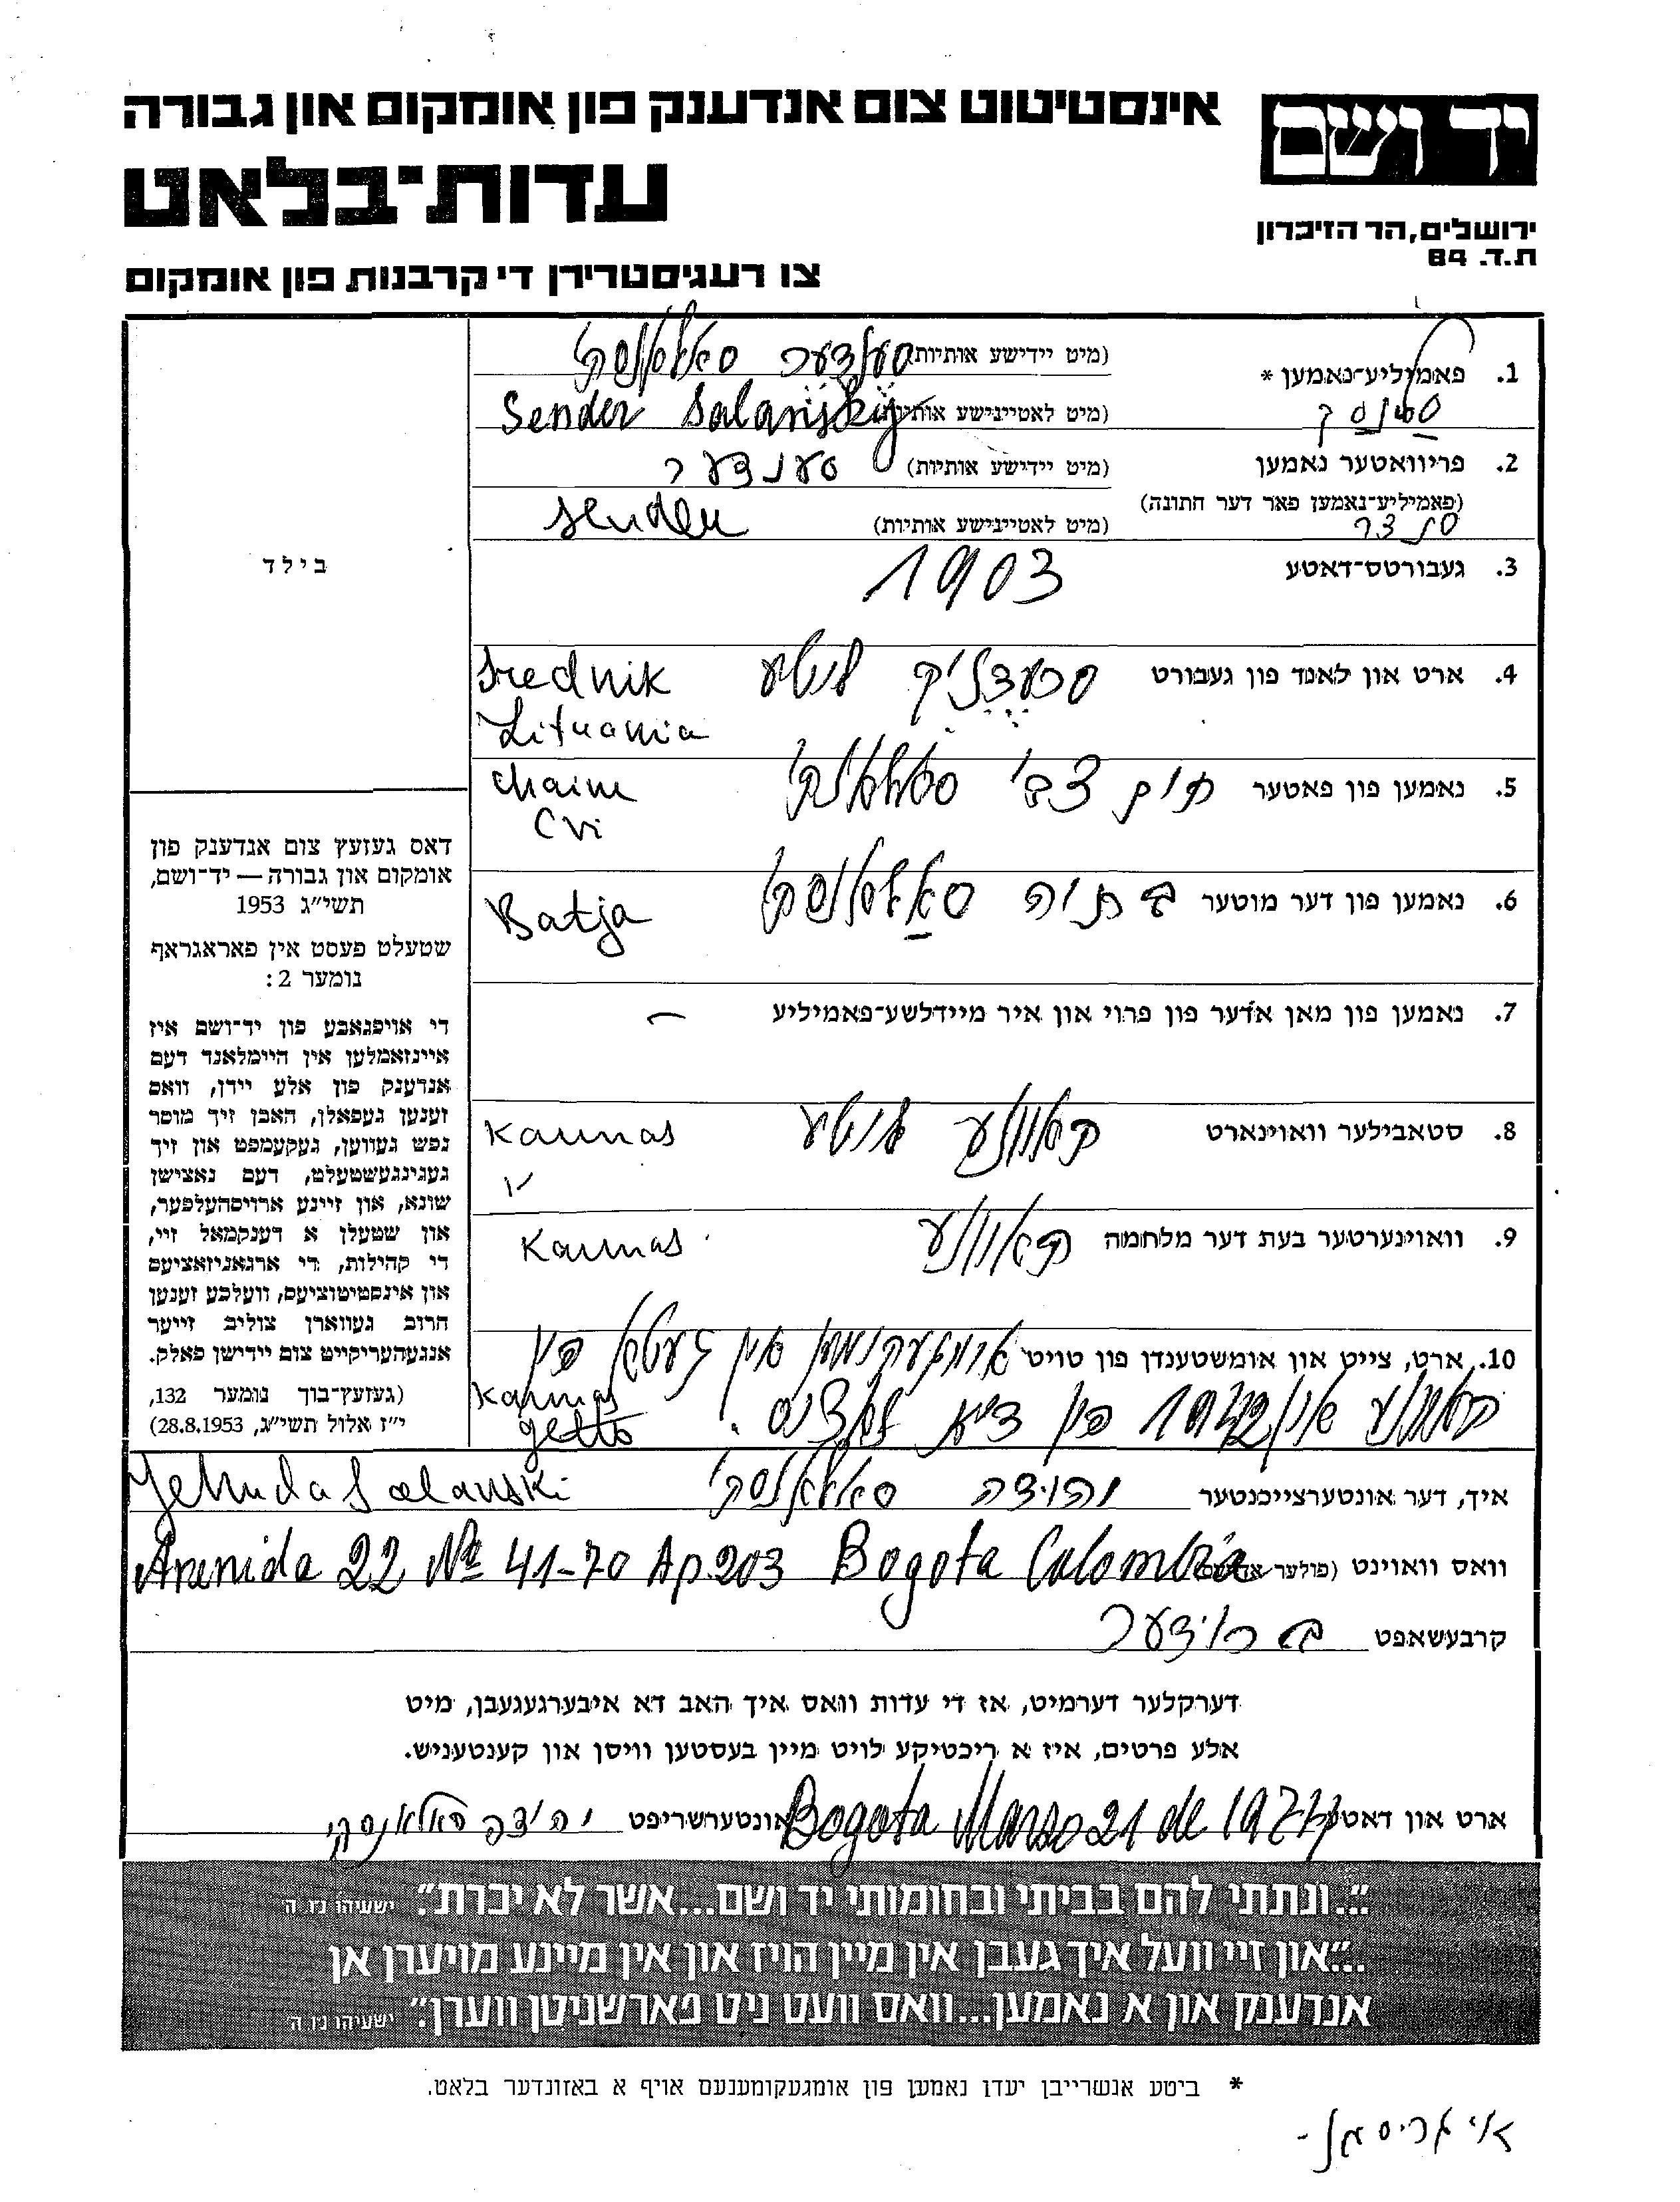 אינסטיטוט צום אנדענק פון אומקום און גבורה
יד ושם
עדות־בלאט
ירושלים, הר הזיכרון
ת.ד. 84
צו רעגיסטרירן די קרבנות פון אומקום
1. פאמיליע־נאמען *
(מיט יידישע אותיות) סענדער סאלאנסקי
(מיט לאטיינישע אותיות) Sender Salanskij
2. פריוואטער נאמען
(מיט יידישע אותיות) סענדער
(פאמיליע־נאמען פאר דער חתונה)
סנדר
(מיט לאטיינישע אותיות) Sender
3. געבורטס־דאטע 1903
4. ארט און לאנד פון געבורט סרעדניק ליטע Srednik
Lituania
5. נאמען פון פאטער חיים צבי סאלאנסקי Chaim
Cvi
6. נאמען פון דער מוטער בתיה סאלאנסקי Batja
7. נאמען פון מאן אדער פון פרוי און איר מיידלשע־פאמיליע –
8. סטאבילער וואוינארט קאוונע ליטע Kaunas
9. וואוינערטער בעת דער מלחמה קאוונע Kaunas
10. ארט, צייט און אומשטענדן פון טויט אומגעקומען אין געטא פון
קאוונע אין 1942 פון Kaunas
getto
בילד
דאס געזעץ צום אנדענק פון
אומקום און גבורה — יד־ושם,
תשי״ג 1953
שטעלט פעסט אין פאראגראף
נומער 2:
די אויפגאבע פון יד־ושם איז
איינזאמלען אין היימלאנד דעם
אנדענק פון אלע יידן, וואס
זענען געפאלן, האבן זיך מוסר
נפש געווען, געקעמפט און זיך
געגינגעשטעלט, דעם נאצישן
שונא, און זיינע ארויסהעלפער,
און שטעלן א דענקמאל זיי,
די קהילות, די ארגאניזאציעס
און אינסטיטוציעס, וועלכע זענען
חרוב געווארן צוליב זייער
אנגעהעריקייט צום יידישן פאלק.
(געזעץ־בוך נומער 132,
י״ז אלול תשי״ג, 28.8.1953)
איך, דער אונטערצייכנטער יהודה סאלאנסקי Jehuda Salanski
וואס וואוינט (פולער אדרעס) Avenida 22 No 41-70 Ap.203 Bogota Colombia
קרבעשאפט ברודער
דערקלער דערמיט, אז די עדות וואס איך האב דא איבערגעגעבן, מיט
אלע פרטים, איז א ריכטיקע לויט מיין בעסטען וויסן און קענטעניש.
ארט און דאטע Bogota Marso 21 de 1977 אונטערשריפט יהודה סאלאנסקי
״...ונתתי להם בביתי ובחומותי יד ושם...אשר לא יכרת״. ישעיהו נו ה
״...און זיי וועל איך געבן אין מיין הויז און אין מיינע מויערן אן
אנדענק און א נאמען...וואס וועט ניט פארשניטן ווערן״. ישעיהו נו ה
* ביטע אנשרייבן יעדן נאמען פון אומגעקומענעם אויף א באזונדער בלאט.